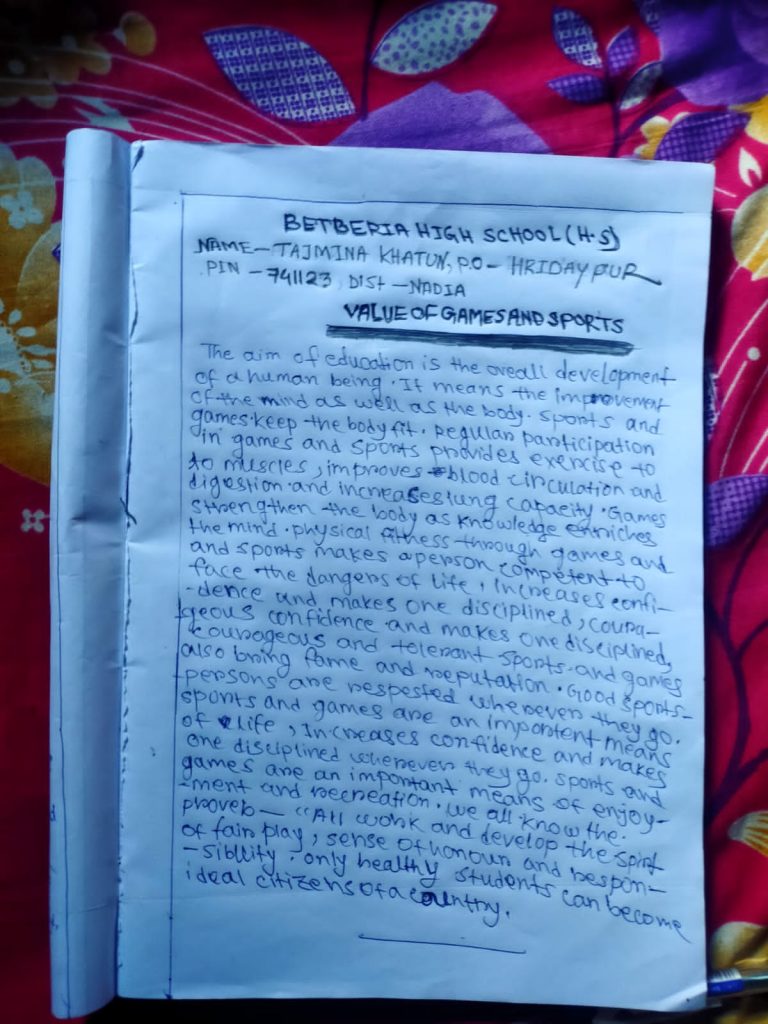 BETBERIA HIGH SCHOOL (H.S)
NAME - TAJMINA KHATUN, P.O - HRIDAYPUR
PIN - 741123, Dist - NADIA
VALUE OF GAMES AND SPORTS
The aim of education is the overall development
of a human being. It means the improvement
of the mind as well as the body. Sports and
games keep the body fit. Regular participation
in games and sports provides exercise to
to muscles, improves blood circulation and
digestion and increases lung capacity. Games
strengthen the body as knowledge enriches
the mind. physical fitness through games and
and sports makes a person competent to
face the dangers of life, increases confi-
-dence and makes one disciplined, coura-
geous confidence and makes one disciplined,
courageous and tolerant sports and games
also bring fame and reputation. Good sports-
persons are respested wherever they go.
sports and games are an important means
of life, Increases confidence and makes
one disciplined wherever they go. sports and
games are an important means of enjoy-
-ment and recreation. we all know the
proverb - "All work and develop the spirit
of fair play, sense of honour and respon-
-siblity. only healthy students can become
ideal citizens of a country.